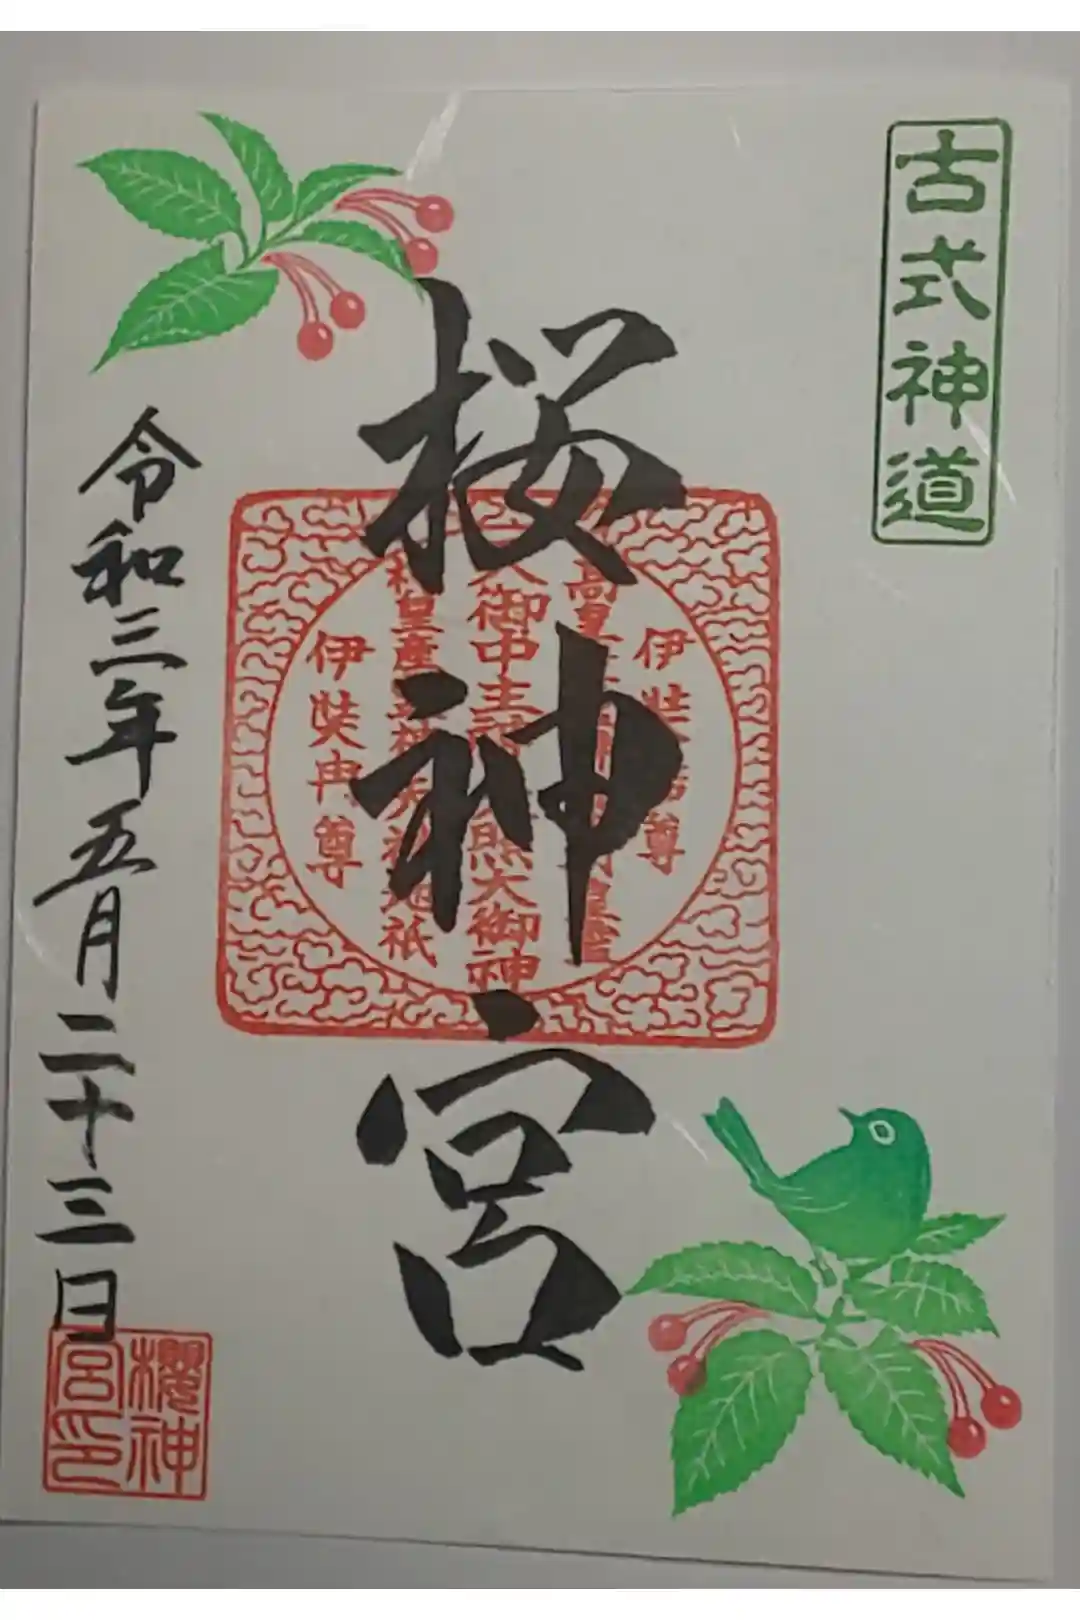 古式神道
桜神宮
伊弉諾尊
高皇
御中主 熊大御神
皇産 神 祇
伊弉冉尊
令和三年五月二十三日
櫻神
宮印